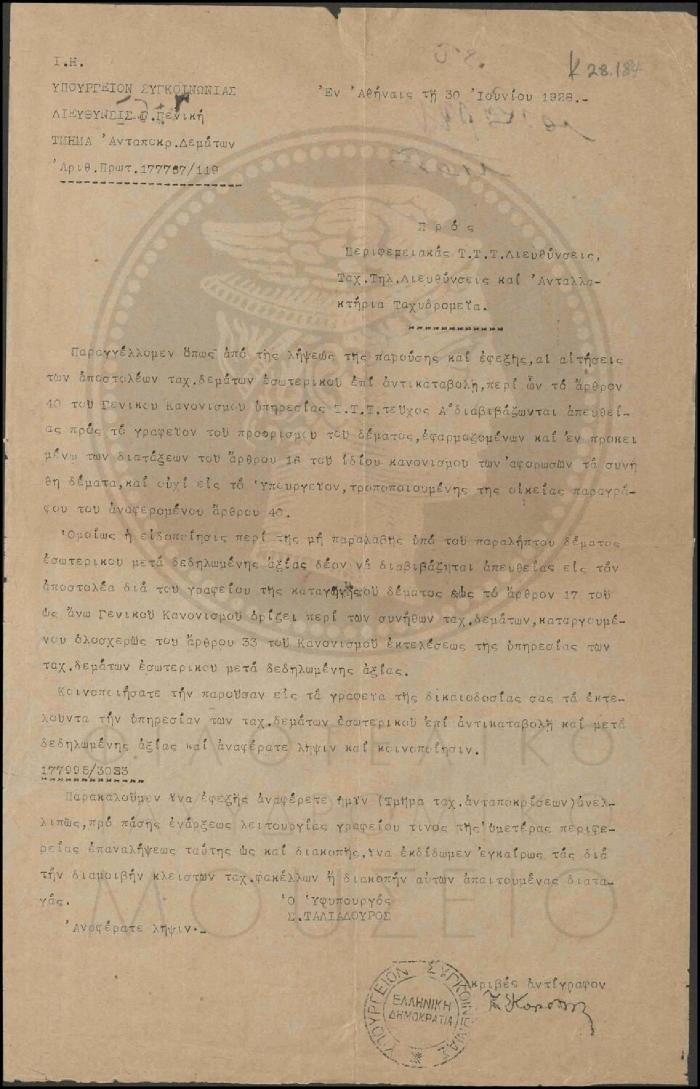 Κ 28.184
Ι.Η.
ΥΠΟΥΡΓΕΙΟΝ ΣΥΓΚΟΙΝΩΝΙΑΣ
Ἐν Ἀθήναις τῇ 30 Ἰουνίου 1928.-
ΔΙΕΥΘΥΝΣΙΣ Γενική
ΤΜΗΜΑ Ἀνταποκρ.Δεμάτων
Ἀριθ.Πρωτ.177767/119
Πρός
Περιφερειακάς Τ.Τ.Τ.Διευθύνσεις,
Ταχ.Τηλ.Διευθύνσεις καί Ἀνταλλα-
κτήρια Ταχυδρομεῖα.
Παραγγέλλομεν ὅπως ἀπό τῆς λήψεως τῆς παρούσης καί ἐφεξῆς,αἱ αἰτήσεις
τῶν ἀποστολέων ταχ.δεμάτων ἐσωτερικοῦ ἐπί ἀντικαταβολῇ,περί ὧν τό ἄρθρον
40 τοῦ Γενικοῦ Κανονισμοῦ ὑπηρεσίας Τ.Τ.Τ.τεῦχος Α'διαβιβάζωνται ἀπευθεί-
ας πρός τό γραφεῖον τοῦ προορισμοῦ τοῦ δέματος,ἐφαρμοζομένων καί ἐν προκει
μένῳ τῶν διατάξεων τοῦ ἄρθρου 16 τοῦ ἰδίου κανονισμοῦ τῶν ἀφορωσῶν τά συνή
θη δέματα,καί οὐχί εἰς τό Ὑπουργεῖον,τροποποιουμένης τῆς οἰκείας παραγρά-
φου τοῦ ἀναφερομένου ἄρθρου 40.
Ὁμοίως ἡ εἰδοποίησις περί τῆς μή παραλαβῆς ὑπό τοῦ παραλήπτου δέματος
ἐσωτερικοῦ μετά δεδηλωμένης ἀξίας δέον νά διαβιβάζηται ἀπευθείας εἰς τόν
ἀποστολέα διά τοῦ γραφείου τῆς καταγωγῆς τοῦ δέματος ὡς τό ἄρθρον 17 τοῦ
ὡς ἄνω Γενικοῦ Κανονισμοῦ ὁρίζει περί τῶν συνήθων ταχ.δεμάτων,καταργουμέ-
νου ὁλοσχερῶς τοῦ ἄρθρου 33 τοῦ Κανονισμοῦ ἐκτελέσεως τῆς ὑπηρεσίας τῶν
ταχ.δεμάτων ἐσωτερικοῦ μετά δεδηλωμένης ἀξίας.
Κοινοποιήσατε τήν παροῦσαν εἰς τά γραφεῖα τῆς δικαιοδοσίας σας τά ἐκτε-
λοῦντα τήν ὑπηρεσίαν τῶν ταχ.δεμάτων ἐσωτερικοῦ ἐπί ἀντικαταβολῇ καί μετά
δεδηλωμένης ἀξίας καί ἀναφέρατε λῆψιν καί κοινοποίησιν.
177995/3033
Παρακαλοῦμεν ἵνα ἐφεξῆς ἀναφέρετε ἡμῖν (Τμῆμα ταχ.ἀνταποκρίσεων)ἀνελ-
λιπῶς,πρό πάσης ἐνάρξεως λειτουργίας γραφείου τινος τῆς ὑμετέρας περιφε-
ρείας ἐπαναλήψεως ταύτης ὡς καί διακοπῆς,ἵνα ἐκδίδωμεν ἐγκαίρως τάς διά
τήν διαμοιβήν κλειστῶν ταχ.φακέλλων ἤ διακοπήν αὐτῶν ἀπαιτουμένας διατα-
γάς.
Ὁ Ὑφυπουργός
Σ.ΤΑΛΙΑΔΟΥΡΟΣ
Ἀναφέρατε λῆψιν.-
Ἀκριβές ἀντίγραφον
ΥΠΟΥΡΓΕΙΟΝ ΣΥΓΚΟΙΝΩΝΙΑΣ
ΕΛΛΗΝΙΚΗ
ΔΗΜΟΚΡΑΤΙΑ
ΦΙΛΟΤΕΛΙΚΟ
ΤΑΧΥΔΡΟΜΙΚΟ
ΜΟΥΣΕΙΟ